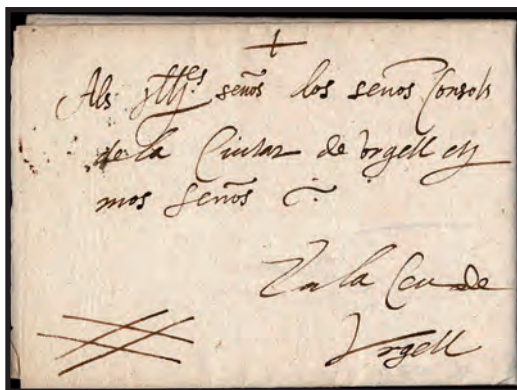 Als seños los seños Consols
de la Ciutat de Vrgell etz
mos señors
En la Ceu de
Vrgell